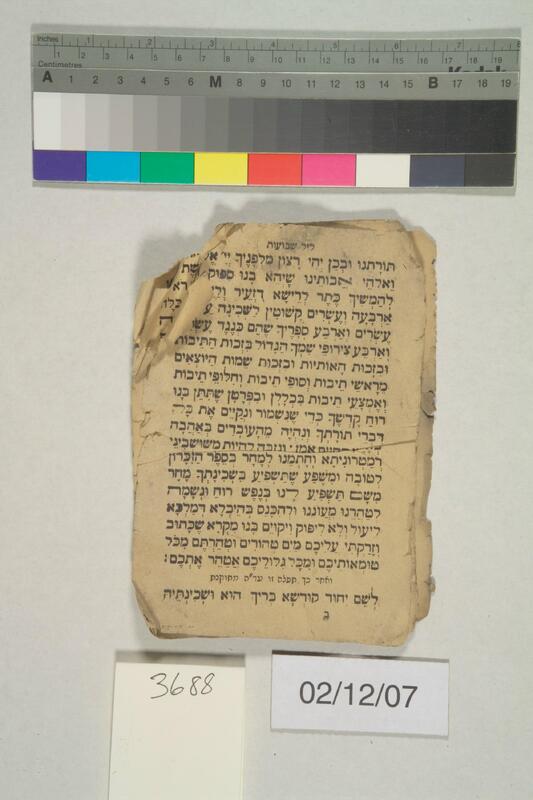 Inches 1 2 3 4 5 6 7 8
Centimetres 1 2 3 4 5 6 7 8 9 10 11 12 13 14 15 16 17 18 19
A 1 2 3 4 5 6 M 8 9 10 11 12 13 14 15 B 17 18 19
ליל שבועות
תורתנו ובכן יהי רצון מלפניך יי
ואלהי אבותינו שיהא בנו ספוק
להמשיך כתר לרישא דזעיר
ארבעה ועשרים קשוטין לשכינה
עשרים וארבע ספריך שהם כנגד
וארבע צירופי שמך הגדול בזכות התיבות
ובזכות האותיות ובזכות שמות היוצאים
מראשי תיבות וסופי תיבות וחלופי תיבות
ואמצעי תיבות בכללן ובפרטן שתתן בנו
רוח קדשך כדי שנשמור ונקיים את כל
דברי תורתך ונהיה מהעובדים באהבה
ונזכה להיות משושביני
דמטרוניתא וחתמנו למחר בספר הזכרון
לטובה ומשפע שתשפיע בשכינתך מחר
משם תשפיע לנו בנפש רוח ונשמה
לטהרנו מעוננו ולהכנס בהיכלא דמלכא
ליעול ולא ליפוק ויקויים בנו מקרא שכתוב
וזרקתי עליכם מים טהורים וטהרתם מכל
טומאותיכם ומכל גלוליכם אטהר אתכם:
ואחר כך תפלה זו ער״ה מתוקנת
לשם יחוד קודשא בריך הוא ושכינתיה
ב
3688
02/12/07